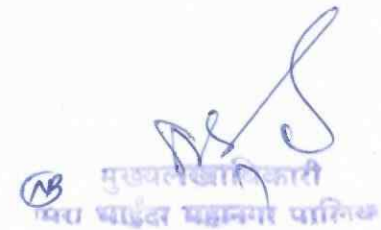 NB
मुख्यलेखाधिकारी
मिरा भाईंदर महानगर पालिका